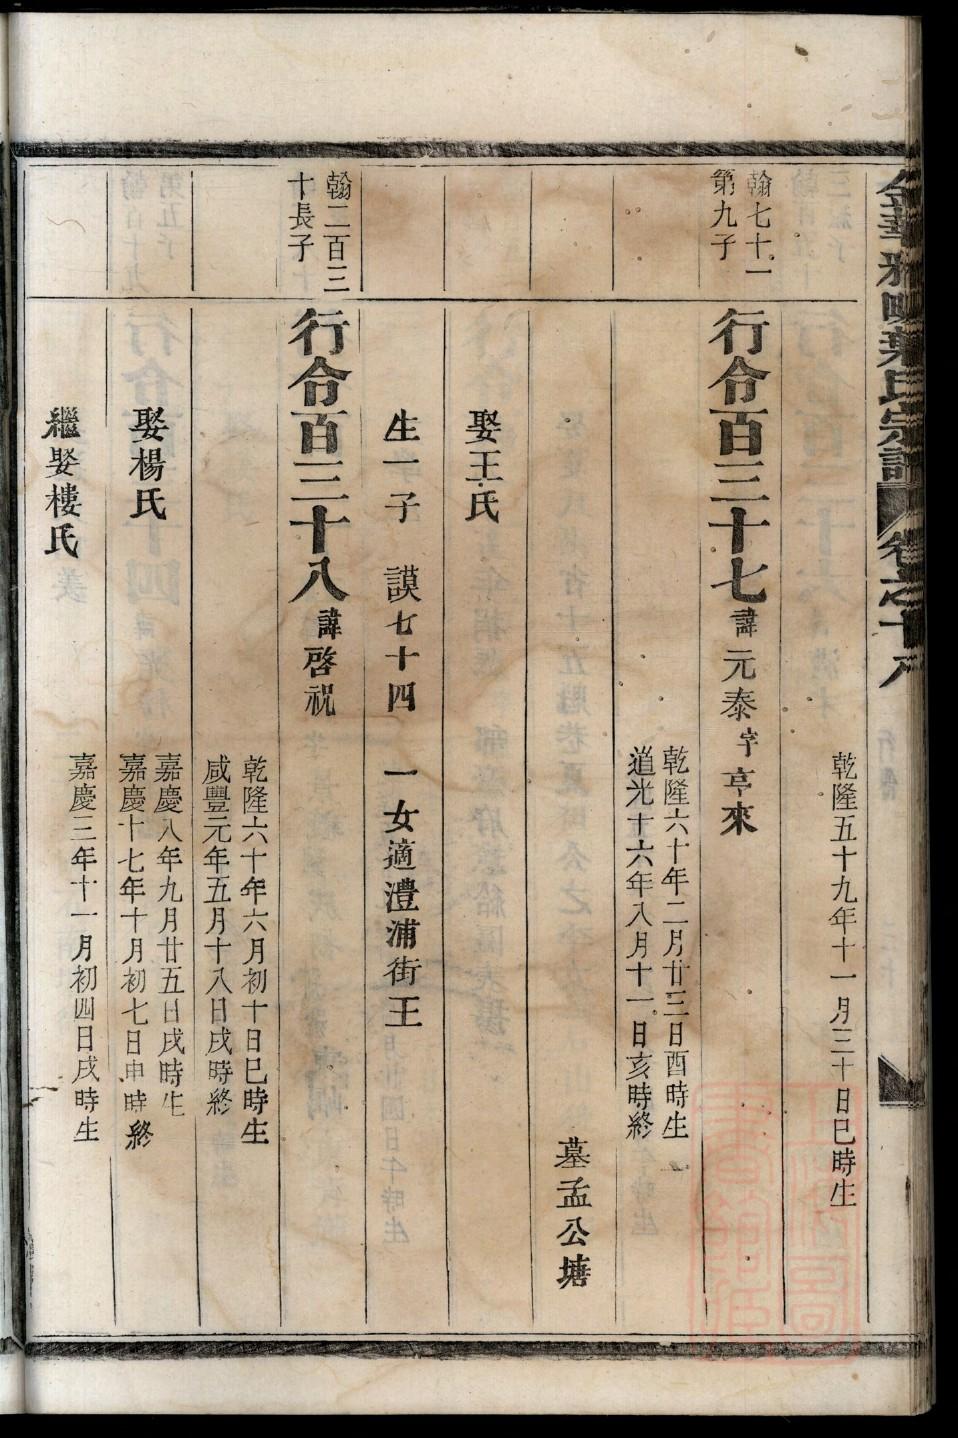 金華雅畈葉氏宗譜 卷之十八
乾隆五十九年十一月三十日巳時生
翰七十一
第九子
行令百三十七 諱元泰 字亨來
乾隆六十年二月廿三日酉時生
道光十六年八月十一日亥時終
墓孟公塘
娶王氏
生一子 謨七十四 一女適澧浦街王
翰二百三
十長子
行令百三十八 諱啓祝
乾隆六十年六月初十日巳時生
咸豐元年五月十八日戌時終
娶楊氏
嘉慶八年九月廿五日戌時生
嘉慶十七年十月初七日申時終
繼娶樓氏
嘉慶三年十一月初四日戌時生